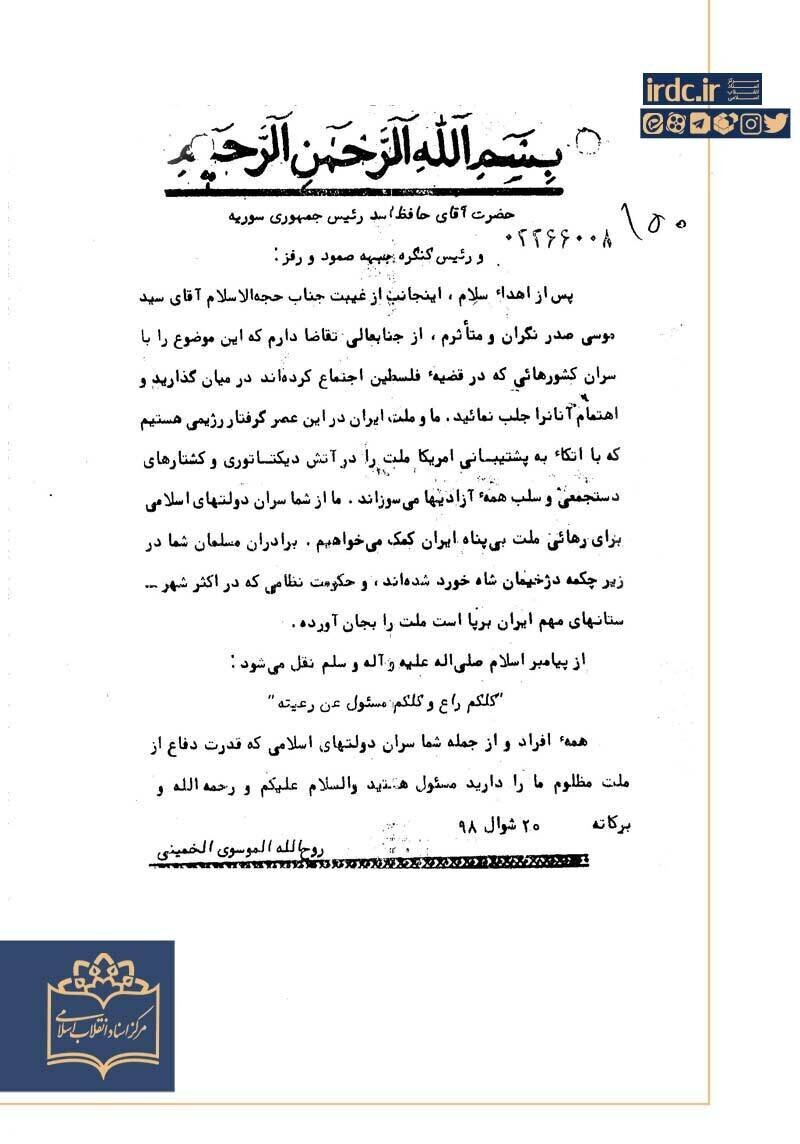 irdc.ir
مرکز اسناد انقلاب اسلامی
بسم الله الرحمن الرحیم
حضرت آقای حافظ اسد رئیس جمهوری سوریه
۱۵۰
۰۲۲۶۶۰۰۸
و رئیس کنگره جبهه صمود و رفز :
پس از اهداء سلام ، اینجانب از غیبت جناب حجه‌الاسلام آقای سید
موسی صدر نگران و متأثرم ، از جنابعالی تقاضا دارم که این موضوع را با
سران کشورهائی که در قضیهٔ فلسطین اجتماع کرده‌اند در میان گذارید و
اهتمام آنانرا جلب نمائید . ما و ملت ایران در این عصر گرفتار رژیمی هستیم
که با اتکاء به پشتیبانی امریکا ملت را در آتش دیکتاتوری و کشتارهای
دستجمعی و سلب همهٔ آزادیها می‌سوزاند . ما از شما سران دولتهای اسلامی
برای رهائی ملت بی‌پناه ایران کمک می‌خواهیم . برادران مسلمان شما در
زیر چکمه دژخیمان شاه خورد شده‌اند ، و حکومت نظامی که در اکثر شهر ــ
ستانهای مهم ایران برپا است ملت را بجان آورده .
از پیامبر اسلام صلی‌اله علیه و آله و سلم نقل می‌شود :
"کلکم راع و کلکم مسئول عن رعیته"
همهٔ افراد و از جمله شما سران دولتهای اسلامی که قدرت دفاع از
ملت مظلوم ما را دارید مسئول هستید والسلام علیکم و رحمه الله و
برکاته ۲۰ شوال ۹۸
روح‌الله الموسوی الخمینی
مرکز اسناد انقلاب اسلامی